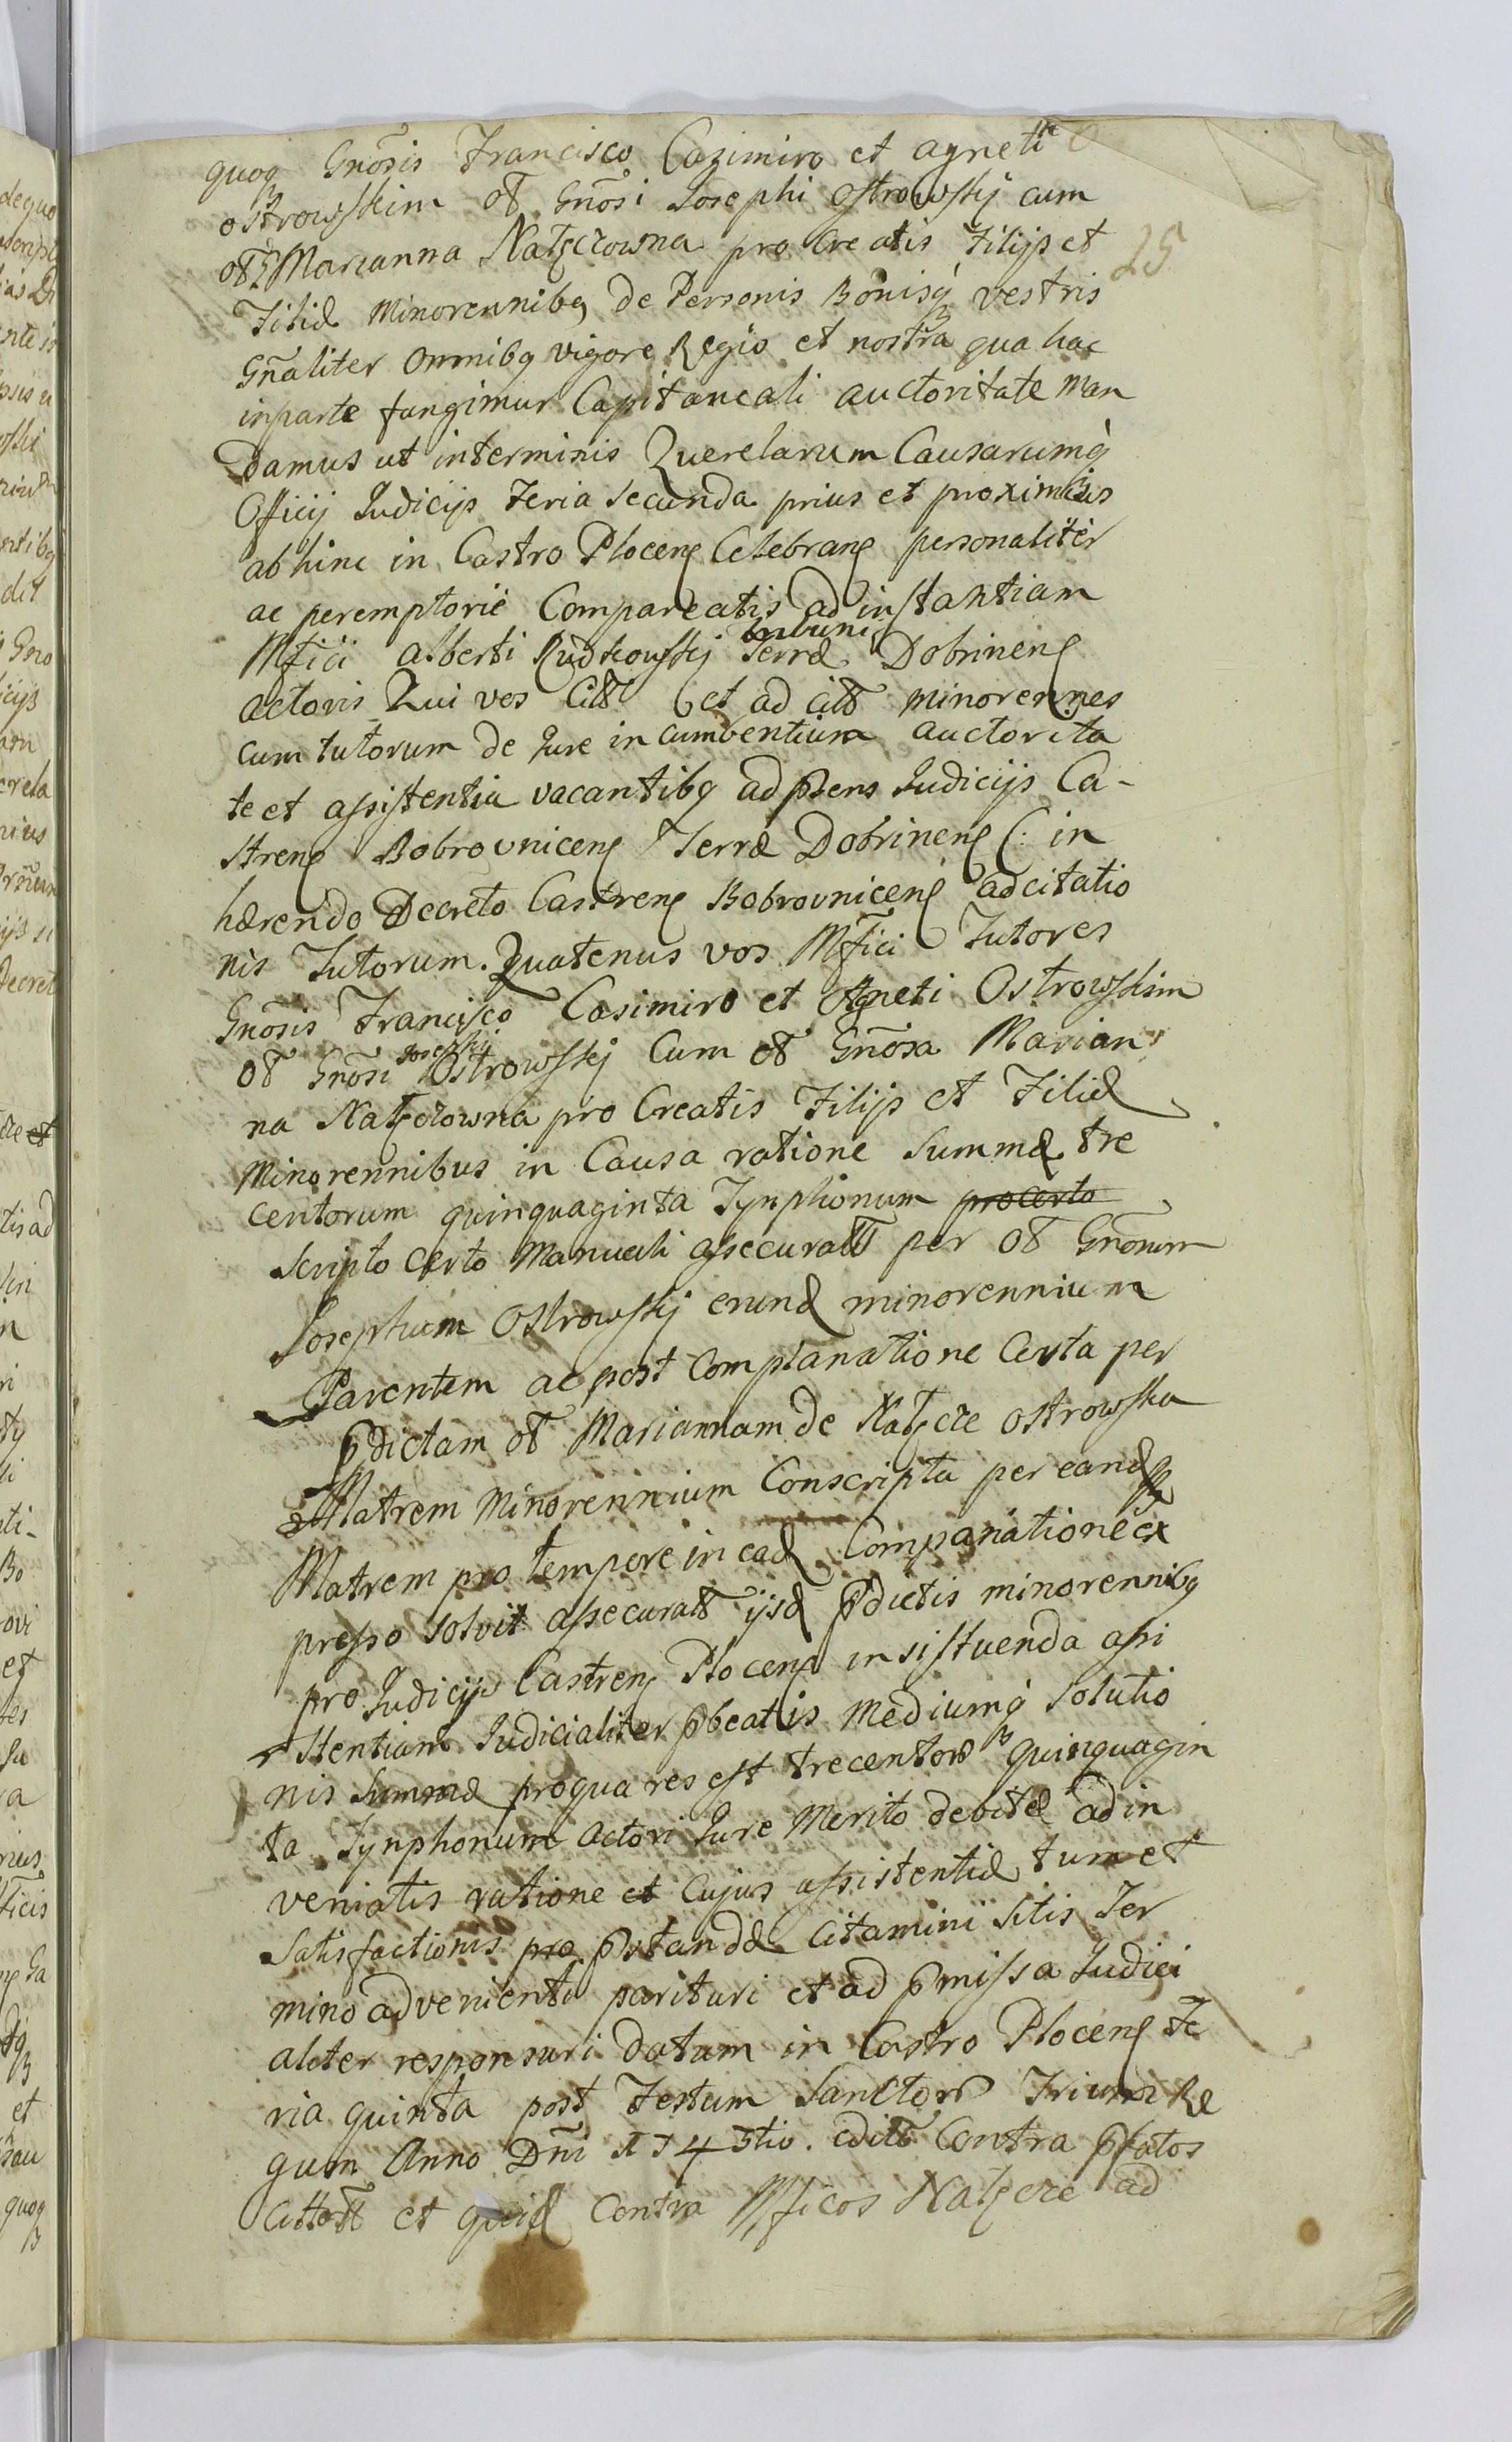 quoq Gnosis Francisco Cazimiro et agneti
ostrowskim ol Gnosi Josephi ostrowskij cum
ol Marianna Natęczowna pro Creatis Filijs et
25
Filiæ Minorennibq de Personis Bonisq vestris
Gnaliter omnibq vigore Regio et nostra qua hac
in parte fungimur Capitaneali auctoritate Man
damus ut interminis Querelarum Causarumq
Officij Judicijs Feria Secunda prius et proximius
ab hinc in Castro Plocen Celebran personaliter
ac peremptorie Compareatis ad instantiam
Mfici alberti Rudkowskij Tribuni Terræ Dobrinen
actoris Qui vos Citt et ad citt minorennes
cum tutorum de Jure incumbentium auctorita
te et assistentia vacantibq ad pñens Judicijs Ca-
stren Bobrovnicen Terræ Dobrinen (: in
hærendo Decreto Castren Bobrovnicen adcitatio
nis Tutorum. Quatenus vos Mfici Tutores
Gnosis Francisco Casimiro et Agneti Ostrowskim
ol Gnosi Josephij Ostrowskij Cum ol Gnosa Marian
na Natęczowna pro Creatis Filijs et Filiæ
Minorennibus in Causa ratione Summæ tre
centorum quinquaginta Tynphonum procerto
scripto certo Manuali assecuratt per ol Gnosum
Josephum Ostrowskij eund minorennium
Parentem ac post Complanatione Certa per
pdictam ol Mariannam de Natęcze ostrowska
Matrem Minorennium Conscripta per eandq
Matrem pro tempore in ead Companatione ex
presso solvit assecuratt ijsd pdictis minorennibq
pro Judicijs Castren Plocen insistuenda assi
stentiam Judicialiter pbeatis Mediumq Solutio
nis Summæ pro qua res est trecentor quinquagin
ta Tynphonum actori Jure Merito debitæ ad in
veniatis ratione et cujus assistentiæ tum et
Satisfactionis pro pstandæ Citamini sitis Ter
mino advenienti parituri et ad pmissa Judici
aliter responsuri datum in Castro Plocen Fe
ria quinta post Festum Sanctor Trium Re
gum Anno Dni 1745tio. editt Contra pfatos
Cittott et quid Contra Mficos Natęcze ad